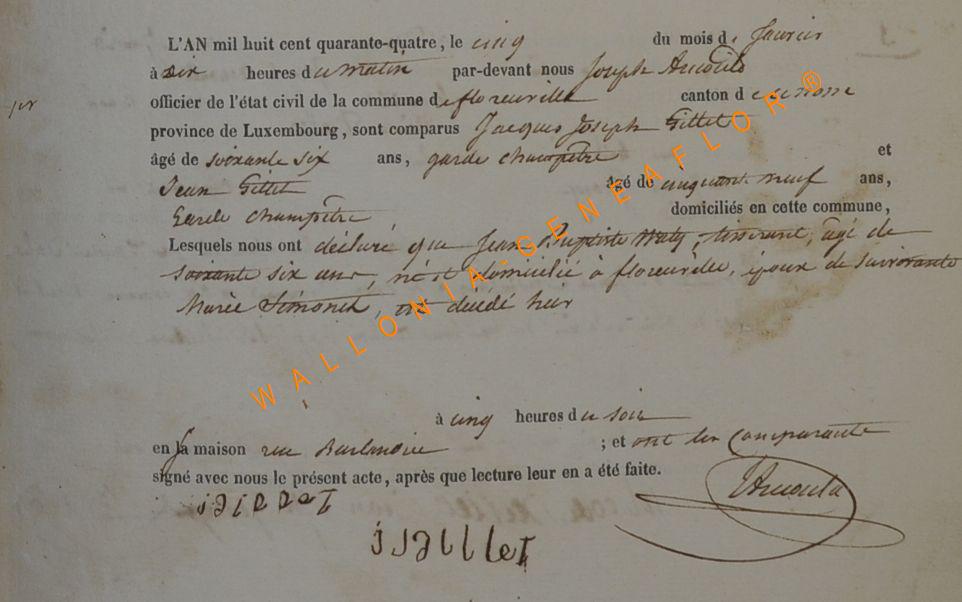 L'AN mil huit cent quarante-quatre, le cinq du mois de Janvier
à dix heures du matin par-devant nous Joseph Arnould
officier de l'état civil de la commune de florenville canton de ce nom
province de Luxembourg, sont comparus Jacques Joseph Gillet
âgé de soixante six ans, garde champêtre et
Jean Gillet âgé de cinquante neuf ans,
Garde champêtre domiciliés en cette commune,
Lesquels nous ont déclaré que Jean Baptiste Waty, tisserant, âgé de
soixante six ans, né et domicilié à florenville, époux de survivante
Marie Simonet, est décédé hier
à cinq heures du soir
en sa maison rue ; et ont les comparants
signé avec nous le présent acte, après que lecture leur en a été faite.
jjgillet Arnould
WALLONIA-GENEAFLOR ®